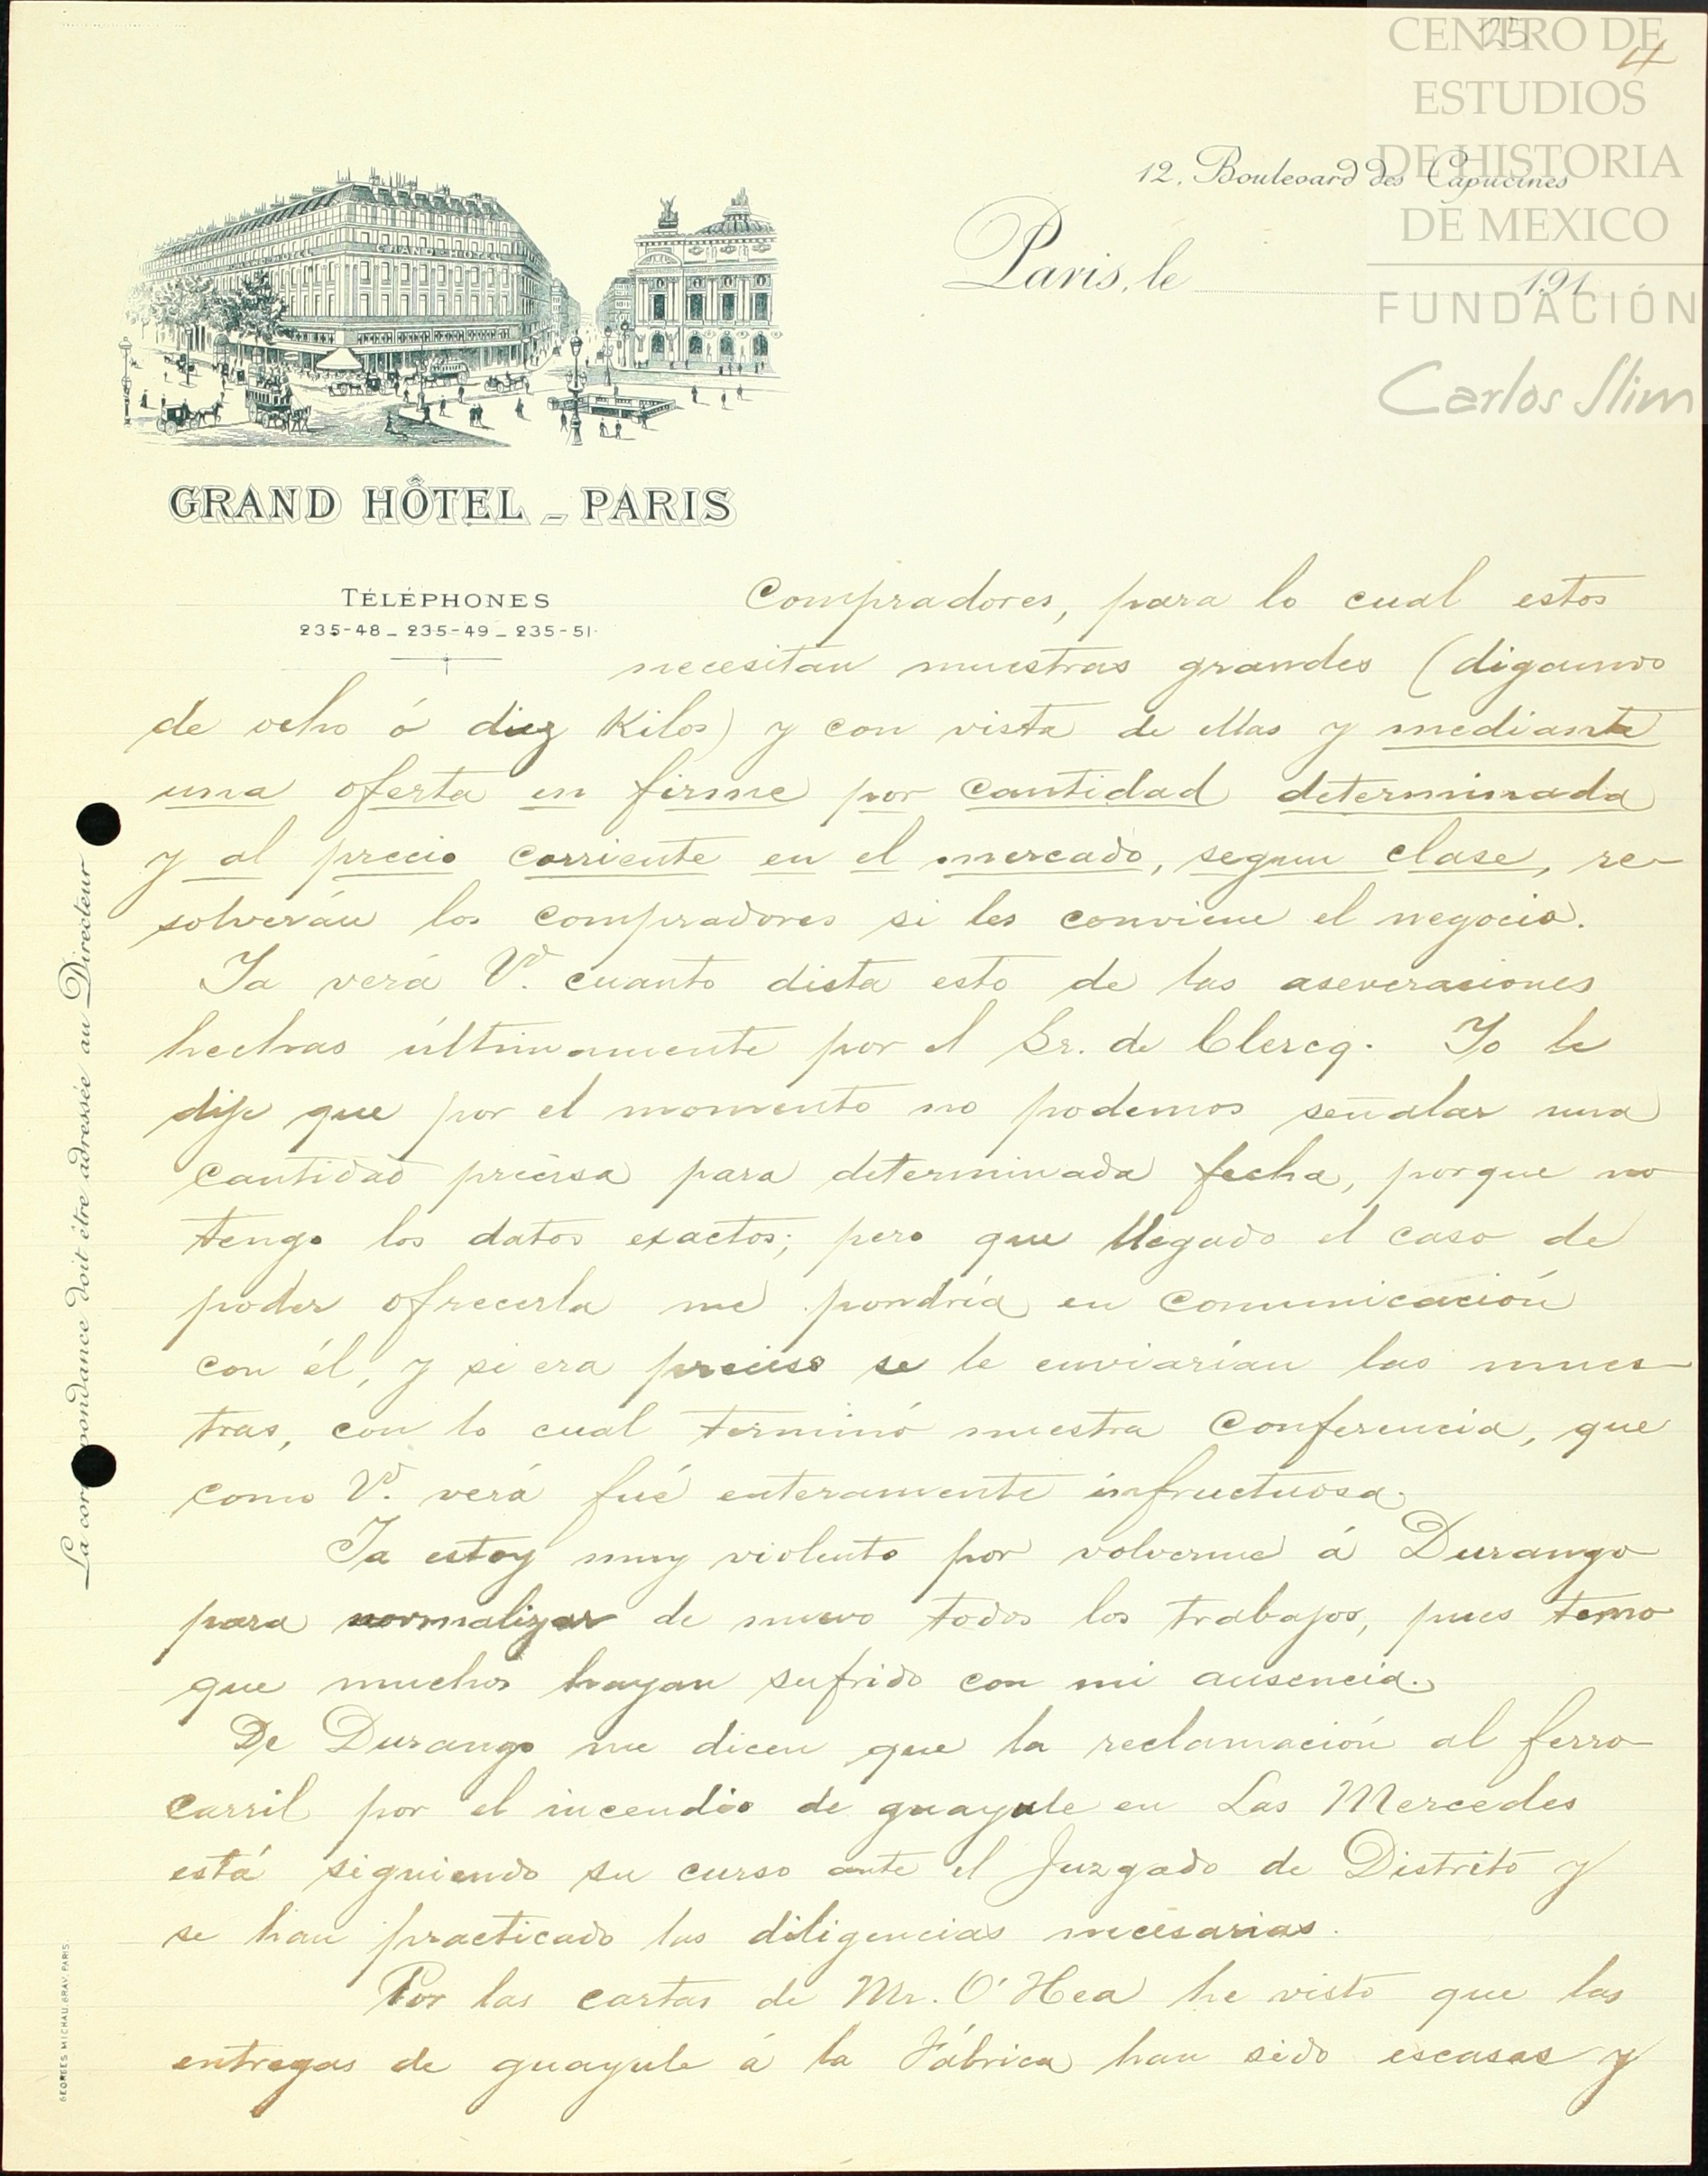 25
4
CENTRO DE
ESTUDIOS
DE HISTORIA
DE MEXICO
FUNDACIÓN
Carlos Slim
12, Boulevard des Capucines
Paris, le 191
GRAND HOTEL
GRAND HÔTEL _ PARIS
TÉLÉPHONES
235-48 _ 235-49 _ 235-51
Compradores, para lo cual estos
necesitan muestras grandes (digamos
de ocho ó diez Kilos) y con vista de ellas y mediante
una oferta en firme por cantidad determinada
y al precio corriente en el mercado, segun clase, re-
solverán los compradores si les conviene el negocio.
Ya verá Vd. cuanto dista esto de las aseveraciones
hechas últimamente por el Sr. de Clercq. Yo le
dije que por el momento no podemos señalar una
cantidad precisa para determinada fecha, porque no
tengo los datos exactos; pero que llegado el caso de
poder ofrecerla me pondría en comunicación
con él, y si era preciso se le enviarían las mues-
tras, con lo cual terminó nuestra Conferencia, que
como Vd. verá fué enteramente infructuosa.
Ya estoy muy violento por volverme á Durango
para normalizar de nuevo todos los trabajos, pues temo
que muchos hayan sufrido con mi ausencia.
De Durango me dicen que la reclamación al ferro-
carril por el incendio de guayule en Las Mercedes
está siguiendo su curso ante el Juzgado de Distrito y
se han practicado las diligencias necesarias.
Por las cartas de Mr. O'Hea he visto que las
entregas de guayule á la Fábrica han sido escasas y
La correspondance doit être adressée au Directeur
GEORGES MICHAU. GRAV. PARIS.